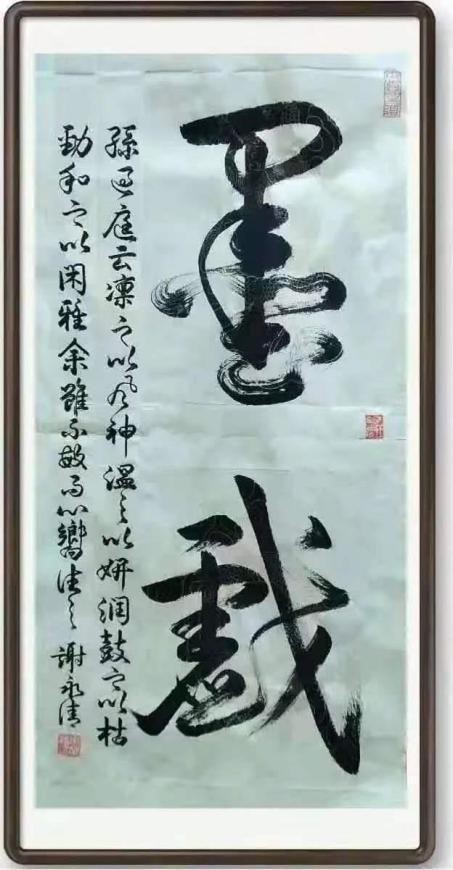 墨戲
孫過庭云凜之以風神溫之以妍潤鼓之以枯
勁和之以閑雅余雖不敏而心嚮往之謝永清